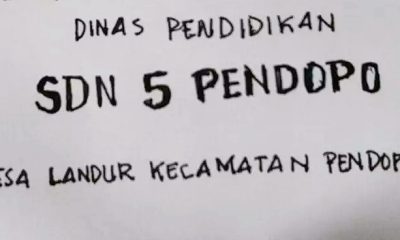 DINAS PENDIDIKAN
SDN 5 PENDOPO
LANDUR KECAMATAN